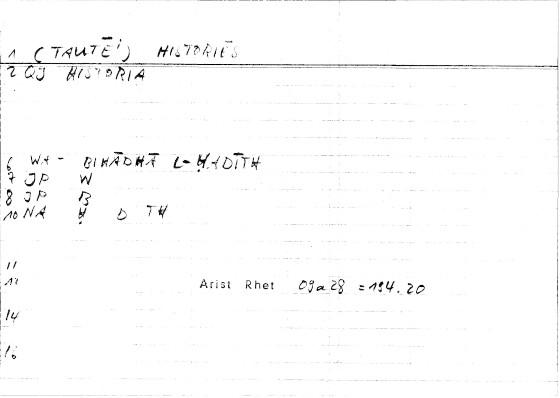 1 (TAUTĒⁱ) HISTORIĒS
2 QJ HISTORIA
6 WA- BIHĀDHĀ L-ḤADĪTH
7 JP W
8 JP B
10 NA Ḥ D TH
11
12 Arist Rhet 09a28 = 194.20
14
16